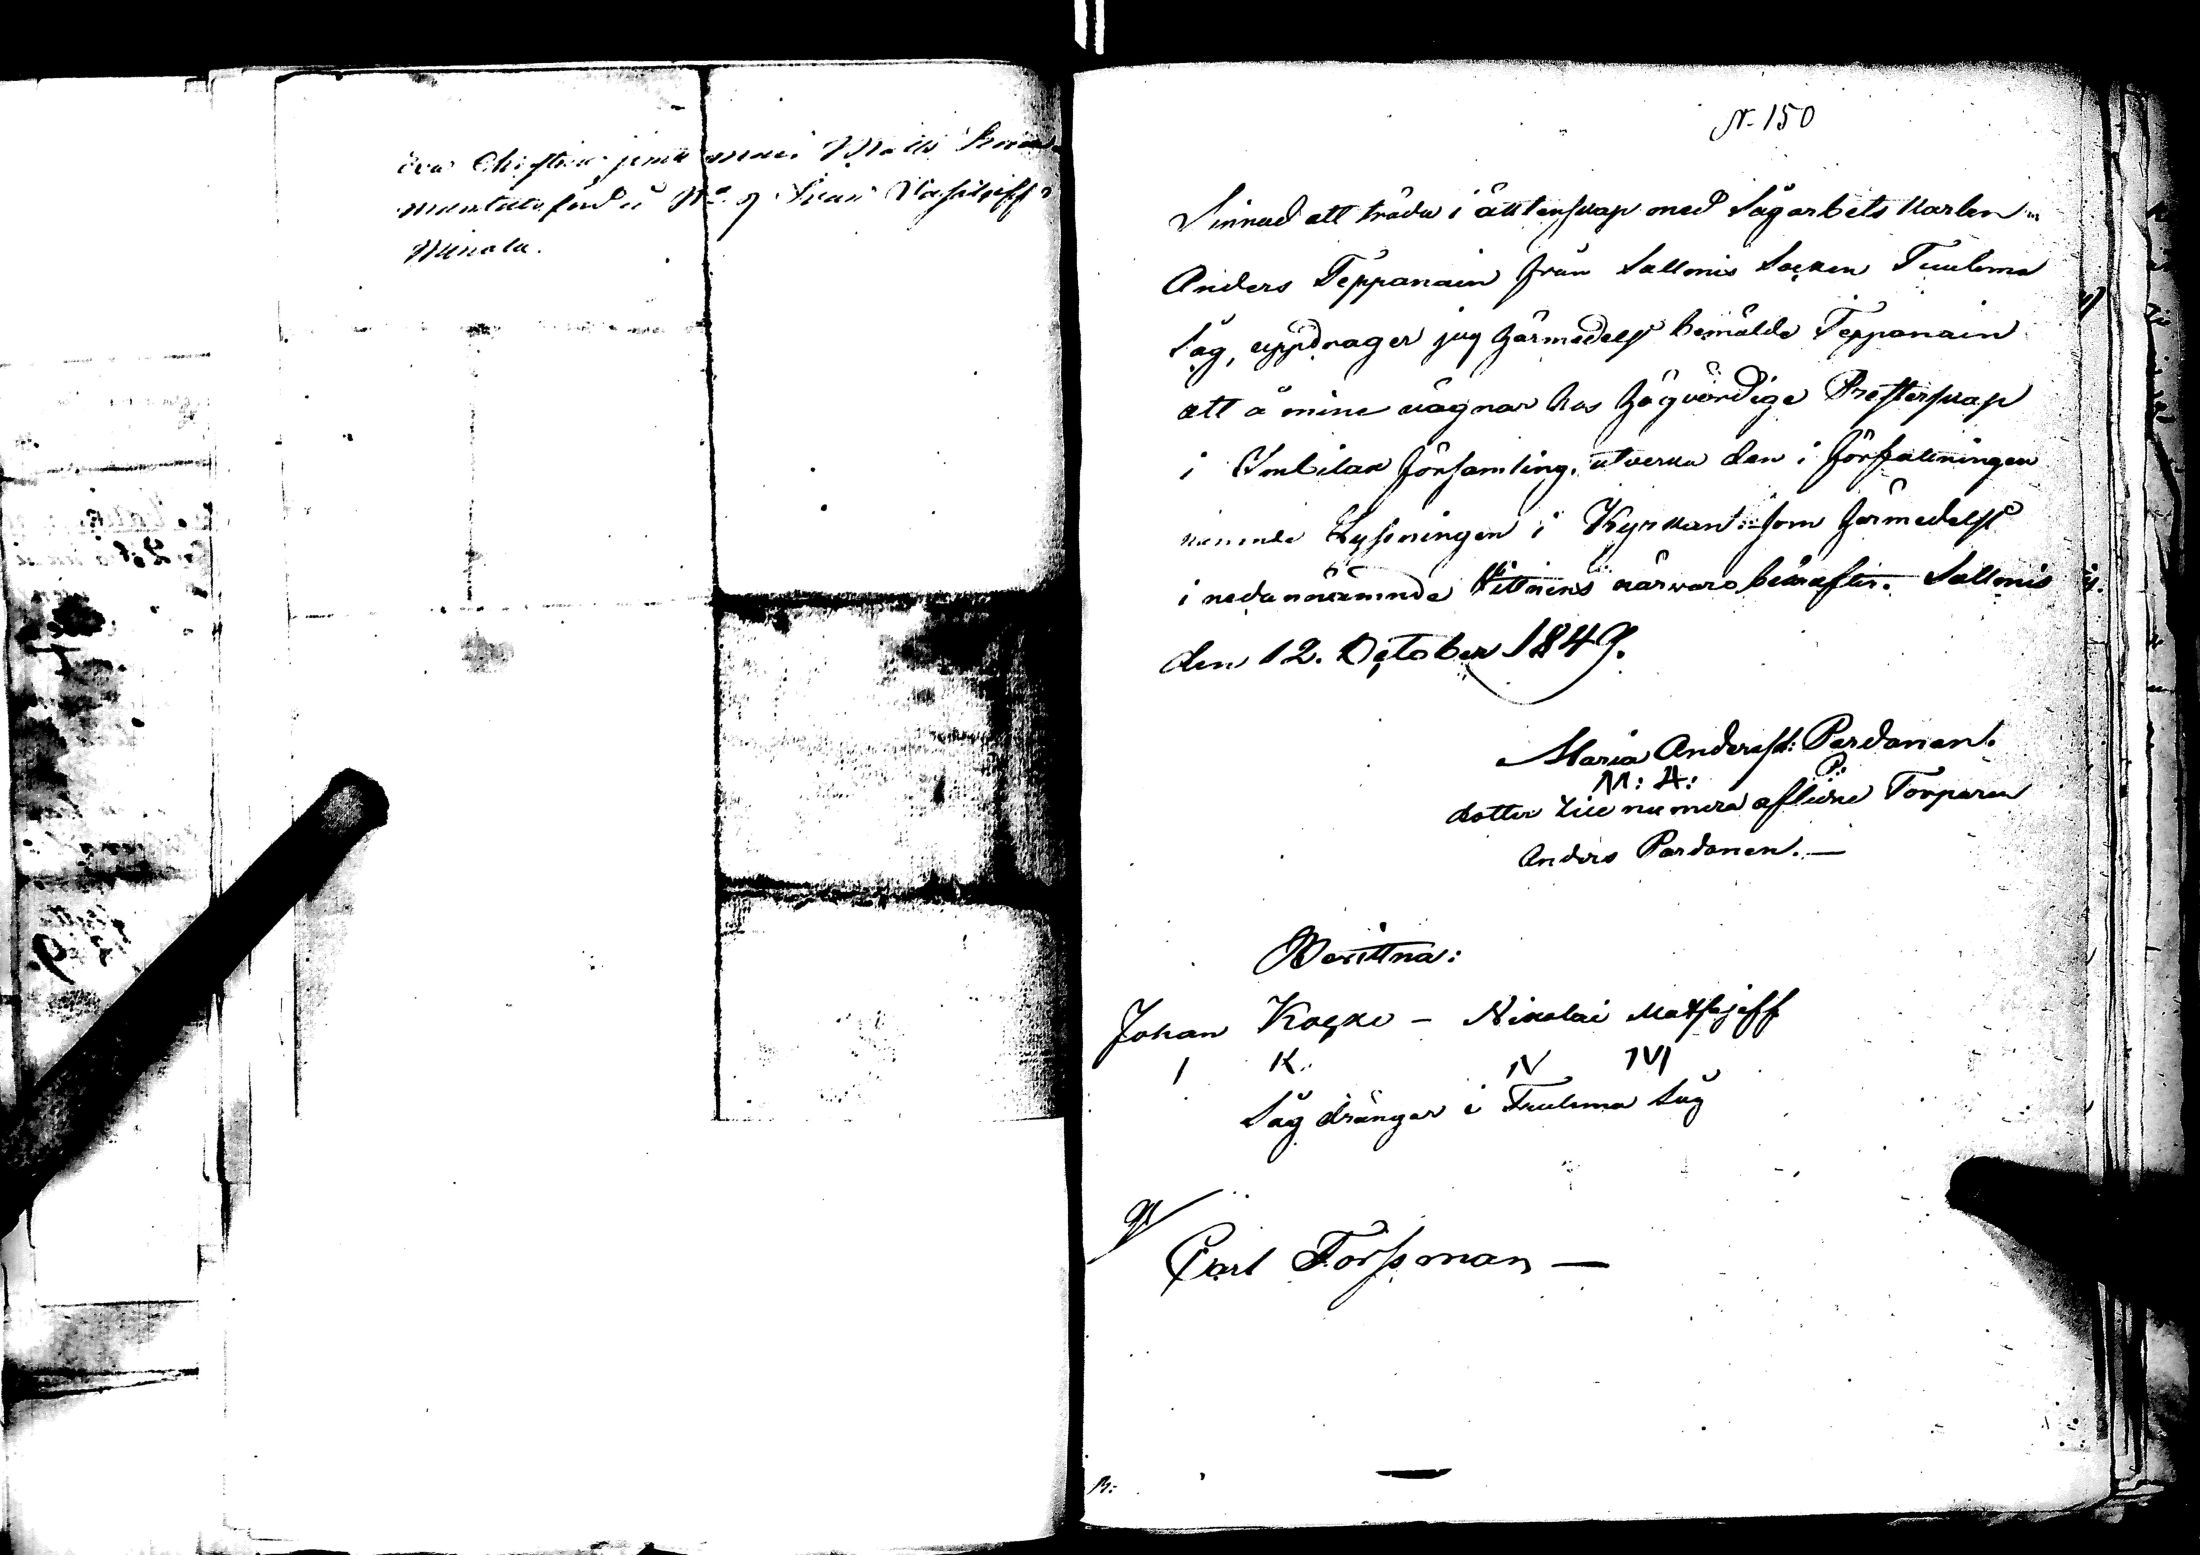 Eva Christina jemte man Matts
mantals förd å No. 9 Ivan Vasileiff
N. 150
Sinnad att träda i äktenskap med Sågarbets karlen
Anders Teppanain från Salmis Socken Tuulema
Såg, uppdrager jag härmedelst bemälde Teppanain
att å mine vägnar hos Högvördige Presterskap
i Imbilax församling, utverka den i författningen
nämnde Lysningen i Kyrkan: som härmedelst
i nedannämnde Vittnens närvaro bekräftas. Sallmis
den 12. October 1849.
Maria Andersd: Pardanen.
M: A: P:
dotter till numera aflidne Torparen
Anders Pardanen. —
Bevittna:
Johan Kocko – Nikolai Matfejeff
I K N M
Såg drängar i Tuulema Såg
Carl Forssman —